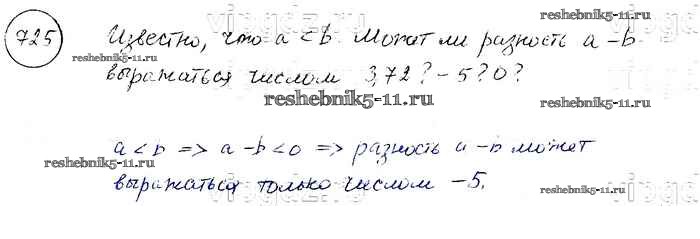 725 Известно, что a < b. Может ли разность a – b
выражаться числом 3,72? – 5? 0?
a < b => a – b < 0 => разность a – b может
выражаться только числом –5.
reshebnik5-11.ru
reshebnik5-11.ru
reshebnik5-11.ru
reshebnik5-11.ru
reshebnik5-11.ru